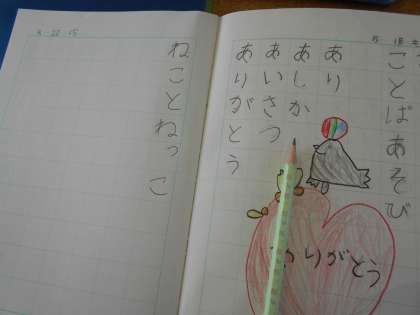 ことばあそび
あり
あしか
あいさつ
ありがとう
ありがとう
ねことねっこ